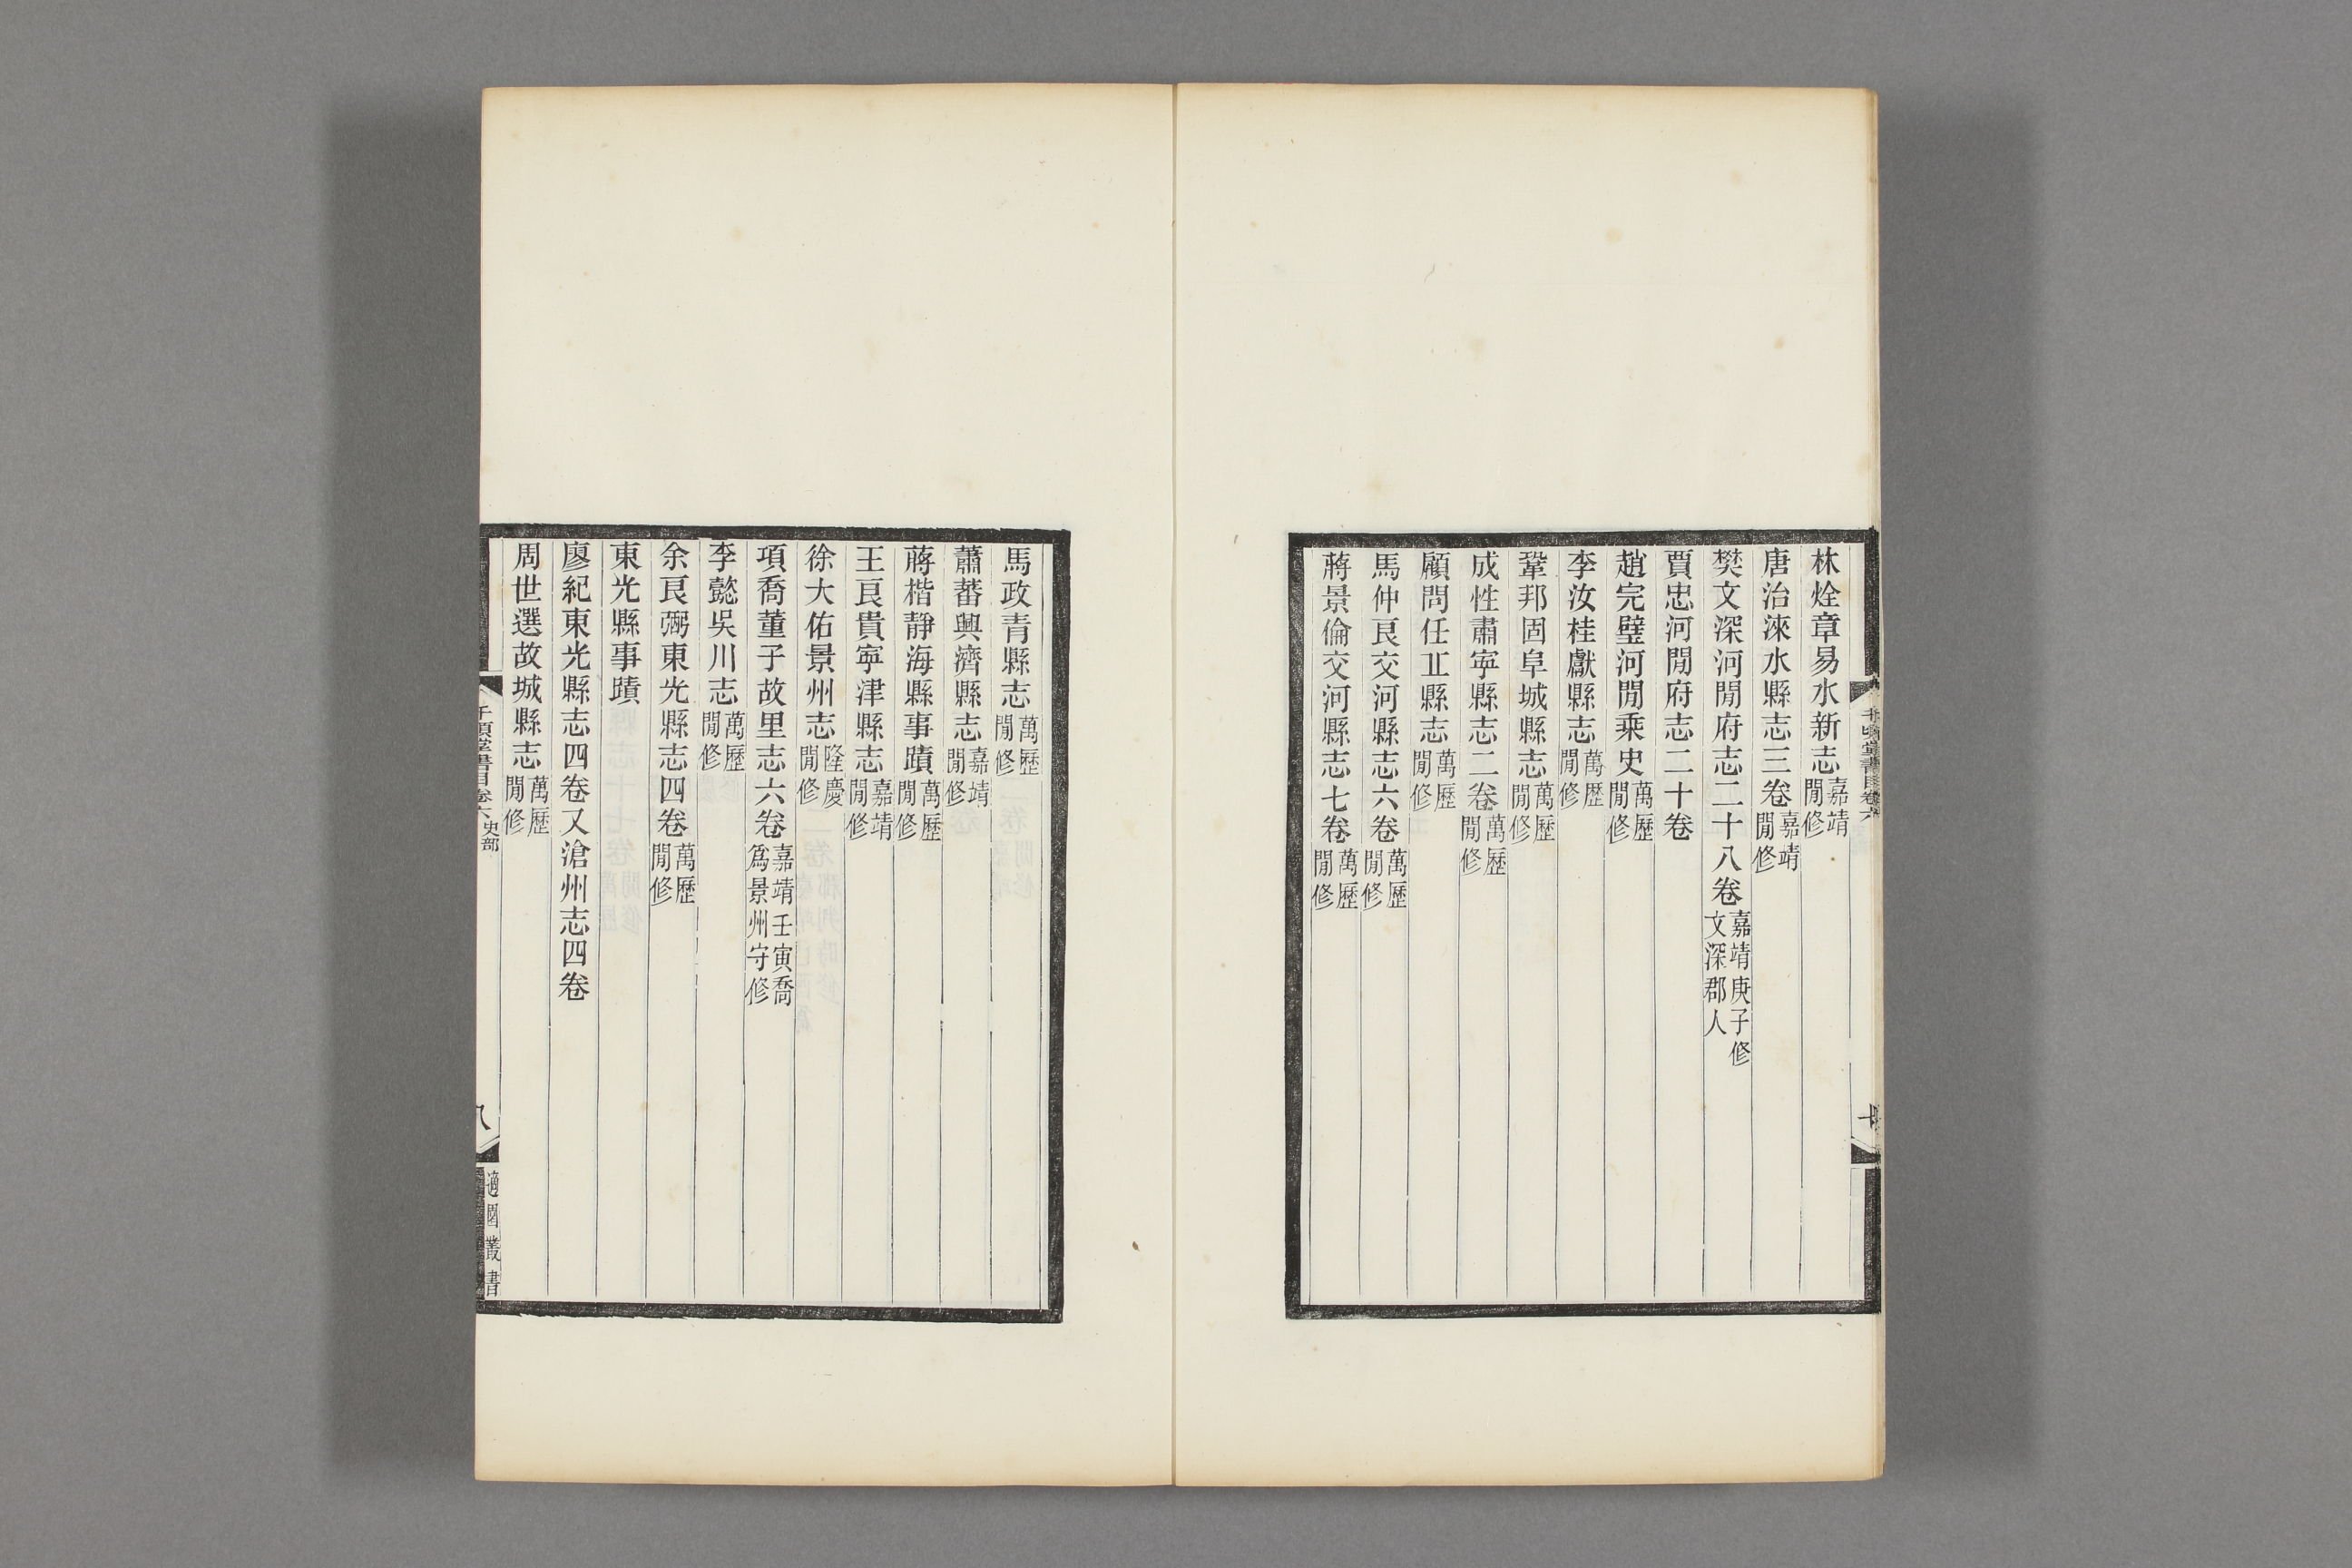 林烇章易水新志嘉靖閒修
唐治淶水縣志三卷嘉靖閒修
樊文深河閒府志二十八卷嘉靖庚子修文深郡人
賈忠河閒府志二十卷
趙完璧河閒乘史萬歷閒修
李汝桂獻縣志萬歷閒修
鞏邦固阜城縣志萬歷閒修
成性肅寜縣志二卷萬歷閒修
顧問任丠縣志萬歷閒修
馬仲良交河縣志六卷萬歷閒修
蔣景倫交河縣志七卷萬歷閒修
馬政青縣志萬歷閒修
蕭蕃興濟縣志嘉靖閒修
蔣楷靜海縣事蹟萬歷閒修
王良貴寜津縣志嘉靖閒修
徐大佑景州志隆慶閒修
項喬董子故里志六卷嘉靖壬寅喬爲景州守修
李懿吳川志萬歷閒修
余良弼東光縣志四卷萬歷閒修
東光縣事蹟
廖紀東光縣志四卷又滄州志四卷
周世選故城縣志萬歷閒修
千頃堂書目卷六 史部
八
適園叢書